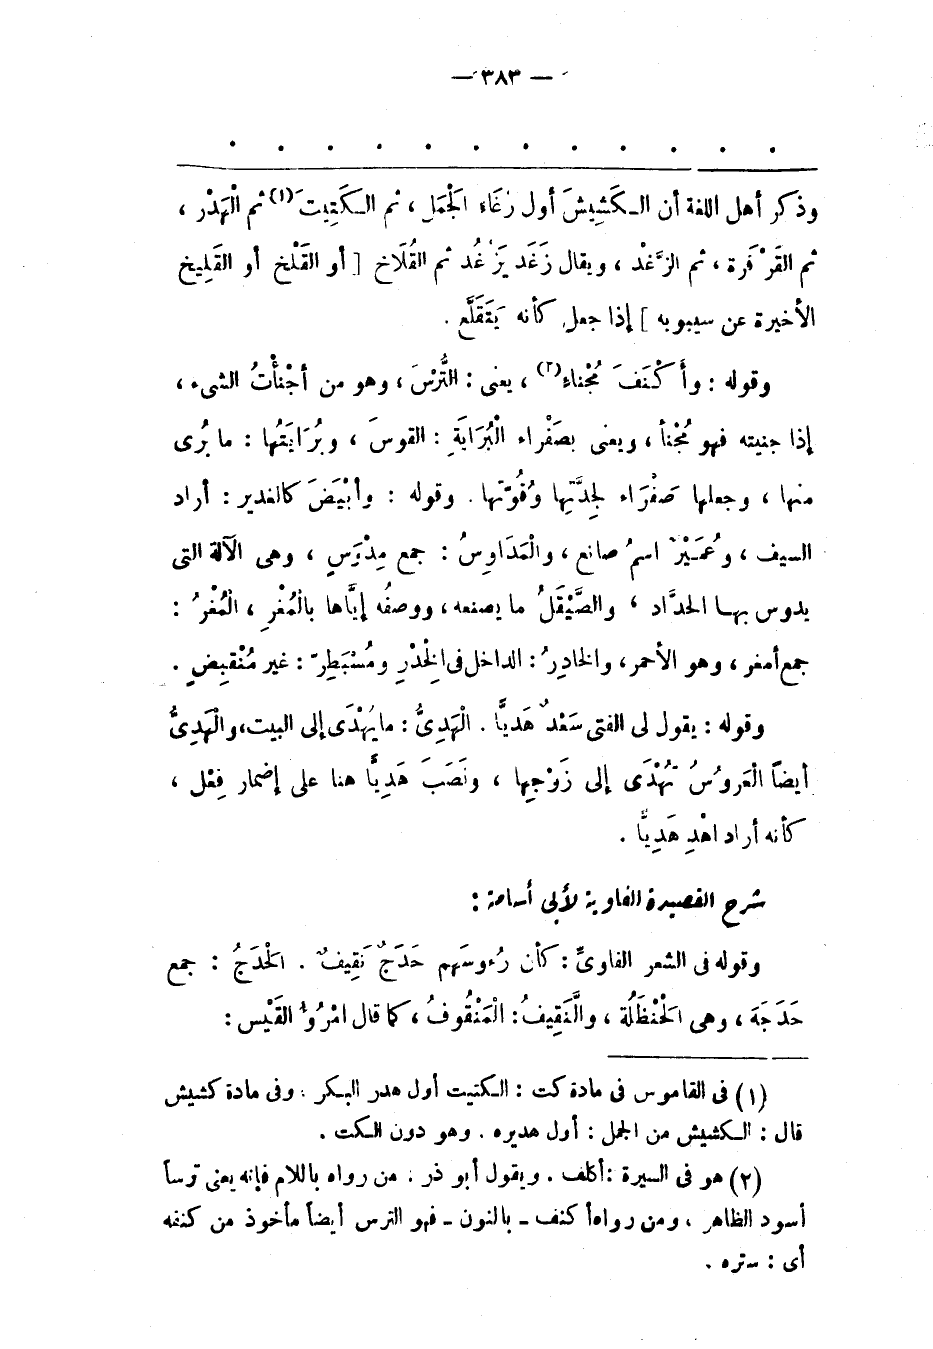 — ٣٨٣ —
. . . . . . . . . . . .
وذكر أهل اللغة أن الـكَشِيشَ أول رُغَاءِ الْجَمَلِ ، ثم الـكَتِيتَ (١) ثم الْهَدْرَ ،
ثم القَرْقَرة ، ثم الزَّغْدْ ، ويقال زَغَدَ يَزْغُد ثم القُلَاخ [ أو القَلْخ أو القَلِيخ
الأخيرة عن سيبويه ] إذا جعل كأنه يَتَقَلَّع .
وقوله : وأَكْنَفَ مُجْناء (٢) ، يعنى : التُّرْسَ ، وهو من أجْنأْتُ الشىء ،
إذا جنيته فهو مُجْنأ ، ويعنى بصَفْراء الْبُرَايَةِ : القوسَ ، وبُرَايَتُها : ما بُرى
منها ، وجعلها صَفْرَاء لِجِدَّتِها وقُوَّتها . وقوله : وأبْيَضَ كالغدير : أراد
السيف ، وعُمَيْرٌ اسمُ صانع ، والْمَدَاوِسُ : جمع مِدْوَسٍ ، وهى الآلة التى
يدوس بهـا الحدَّاد ، والصَّيْقَلُ ما يصنعه ، ووصفُه إيَّاها بالْمُغْرِ ، الْمُغْرُ :
جمع أمغر ، وهو الأحمر ، والخادِرُ : الداخل فى الْخِدْرِ ومُسْبَطِرّ : غير مُنْقبِضٍ .
وقوله : يقول لى الفتى سَعْدٌ هَدِيًّا . الْهَدِىُّ : ما يُهْدَى إلى البيت، والْهَدِىُّ
أيضاً الْعَروُسُ تُهْدَى إلى زَوْجِها ، ونَصَبَ هَدِيًّا هنا على إضمار فِعْل ،
كأنه أراد اهْدِ هَدِيًّا .
شرح القصيدة الفاوية لأبى أسامة :
وقوله فى الشعر الفاوىِّ : كأن رُءوسَهم حَدَجٌ نَقِيفٌ . الْحَدَجُ : جمع
حَدَجَة ، وهى الْحَنْظَلة ، والنَّقِيفُ : الْمَنْقُوفُ ، كما قال امْرُؤ القَيْس :
(١) فى القاموس فى مادة كت : الـكتيت أول هدر البـكر . وفى مادة كشيش
قال : الـكشيش من الجمل : أول هديره . وهو دون الـكت .
(٢) هو فى السيرة : أكلف . ويقول أبو ذر . من رواه باللام فإنه يعنى ترساً
أسود الظاهر ، ومن رواه أكنف ـ بالنون ـ فهو الترس أيضاً مأخوذ من كنفه
أى : ستره .